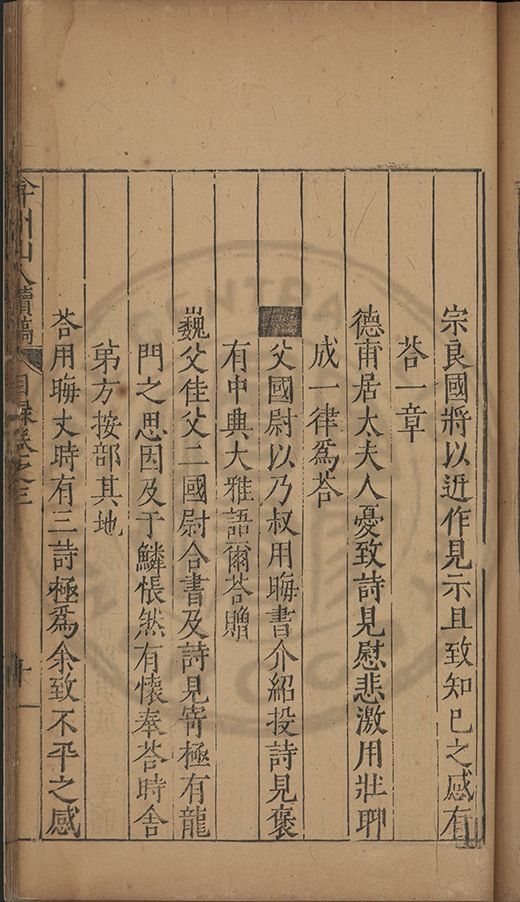 宗良國將以近作見示且致知己之感有
荅一章
德甫居太夫人憂致詩見慰悲激用壯聊
成一律爲荅
父國尉以乃叔用晦書介紹投詩見褒
有中興大雅語爾荅贈
巍父佳父二國尉合書及詩見寄極有龍
門之思因及于鱗悵然有懷奉荅時舍
弟方按部其地
荅用晦丈時有三詩極爲余致不平之感
弇州山人續稿 目錄卷之三 十